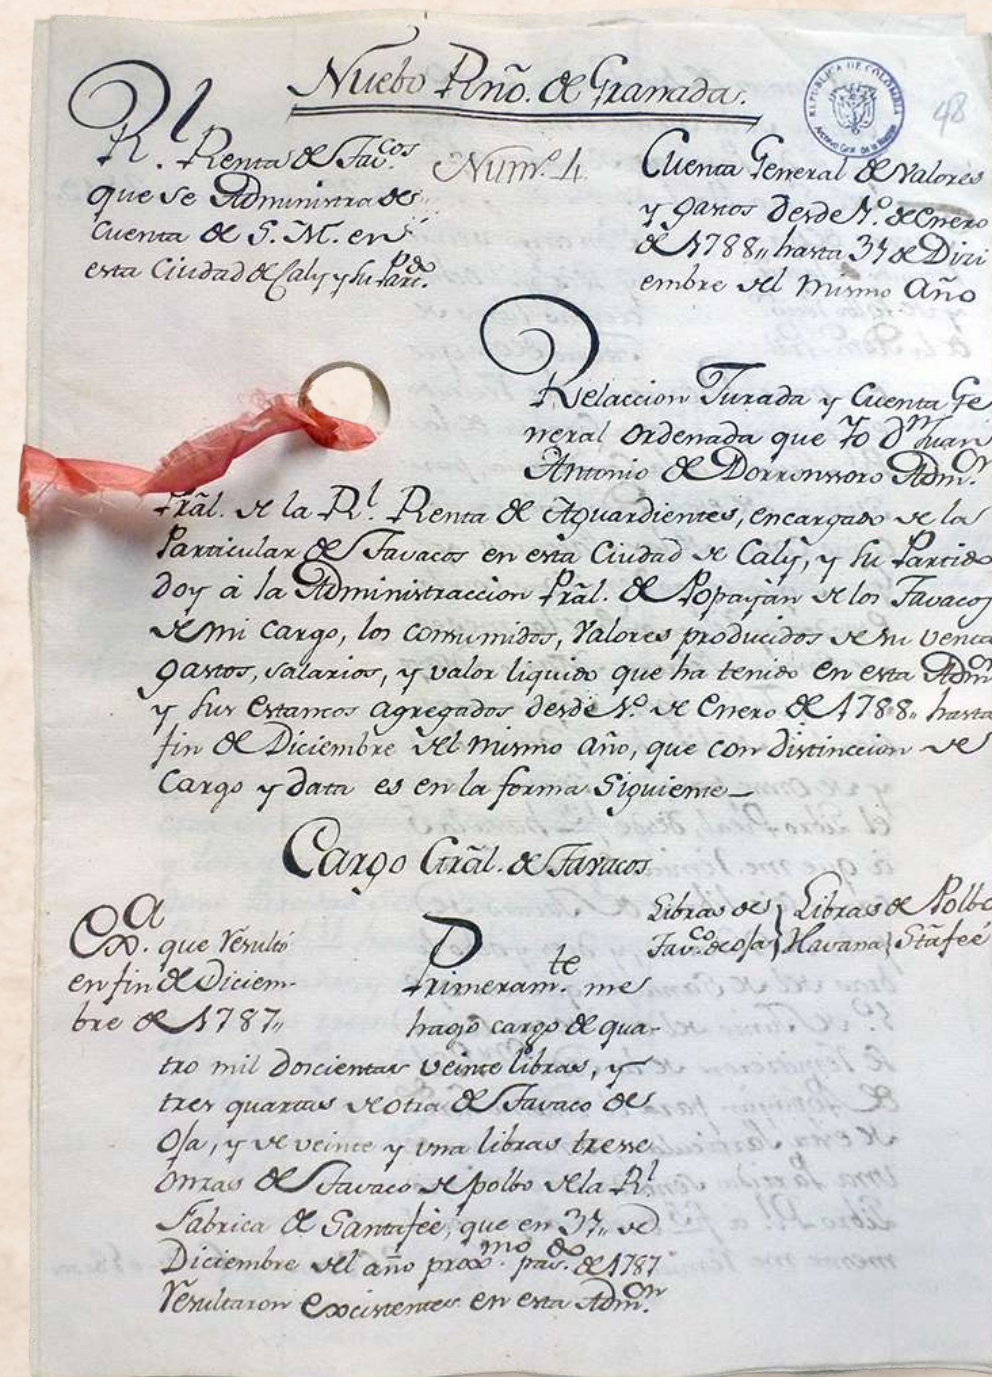 Nuebo Rño. de Granada.
REPUBLICA DE COLOMBIA
48
Rl
R. Renta de Tav.cos
que se Administra de
Cuenta de S. M. en
esta Ciudad de Caly y su Part.do
Num.o 4.
Cuenta General de Valores
y gastos desde 1.o de Enero
de 1788,, hasta 31 de Dici
embre del mismo Año
Relaccion Jurada y Cuenta Ge
neral ordenada que Yo Dn. Juan
Antonio de Dorronsoro Adm.on
Prãl. de la Rl. Renta de Aguardientes, encargado de la
Particular de Tavacos en esta Ciudad de Caly, y su Partido
doy à la Administraccion Prãl. de Popayàn de los Tavacos
de mi cargo, los consumidos, Valores producidos de su venta
gastos, salarios, y valor liquido que ha tenido en esta Adm.on
y sus Estancos agregados desde 1.o de Enero de 1788,, hasta
fin de Diciembre del mismo año, que con distinccion de
Cargo y data es en la forma Siguiente
Cargo Grãl. de Tavacos
Exa. que Resultó
en fin de Diciem-
bre de 1787,,
Libras de Tav.co de oja
Libras de Polbo
Havana
Stafeé
Primeram.te me
hago cargo de qua-
tro mil doscientas veinte libras, y
tres quartas de otra de Tavaco de
Oja, y de veinte y una libras trese
onzas de Tavaco de polbo de la Rl
Fabrica de Santafeé, que en 31,, de
Diciembre del año prox.mo pas.do de 1787
Resultaron Excistentes en esta Adm.on